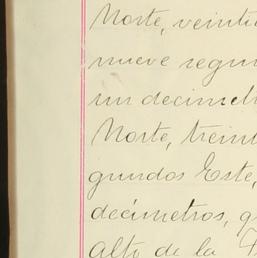 Norte, veinti
nueve segun
un decimet
Norte, treint
gundos Este,
decímetros, q
alto de la